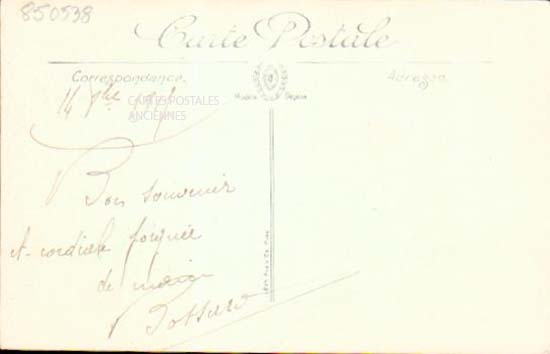 850538
Carte Postale
Correspondance.
Adresse.
Modèle Déposé
14
CARTES POSTALES
ANCIENNES
Bon souvenir
et cordiale poignée
de main